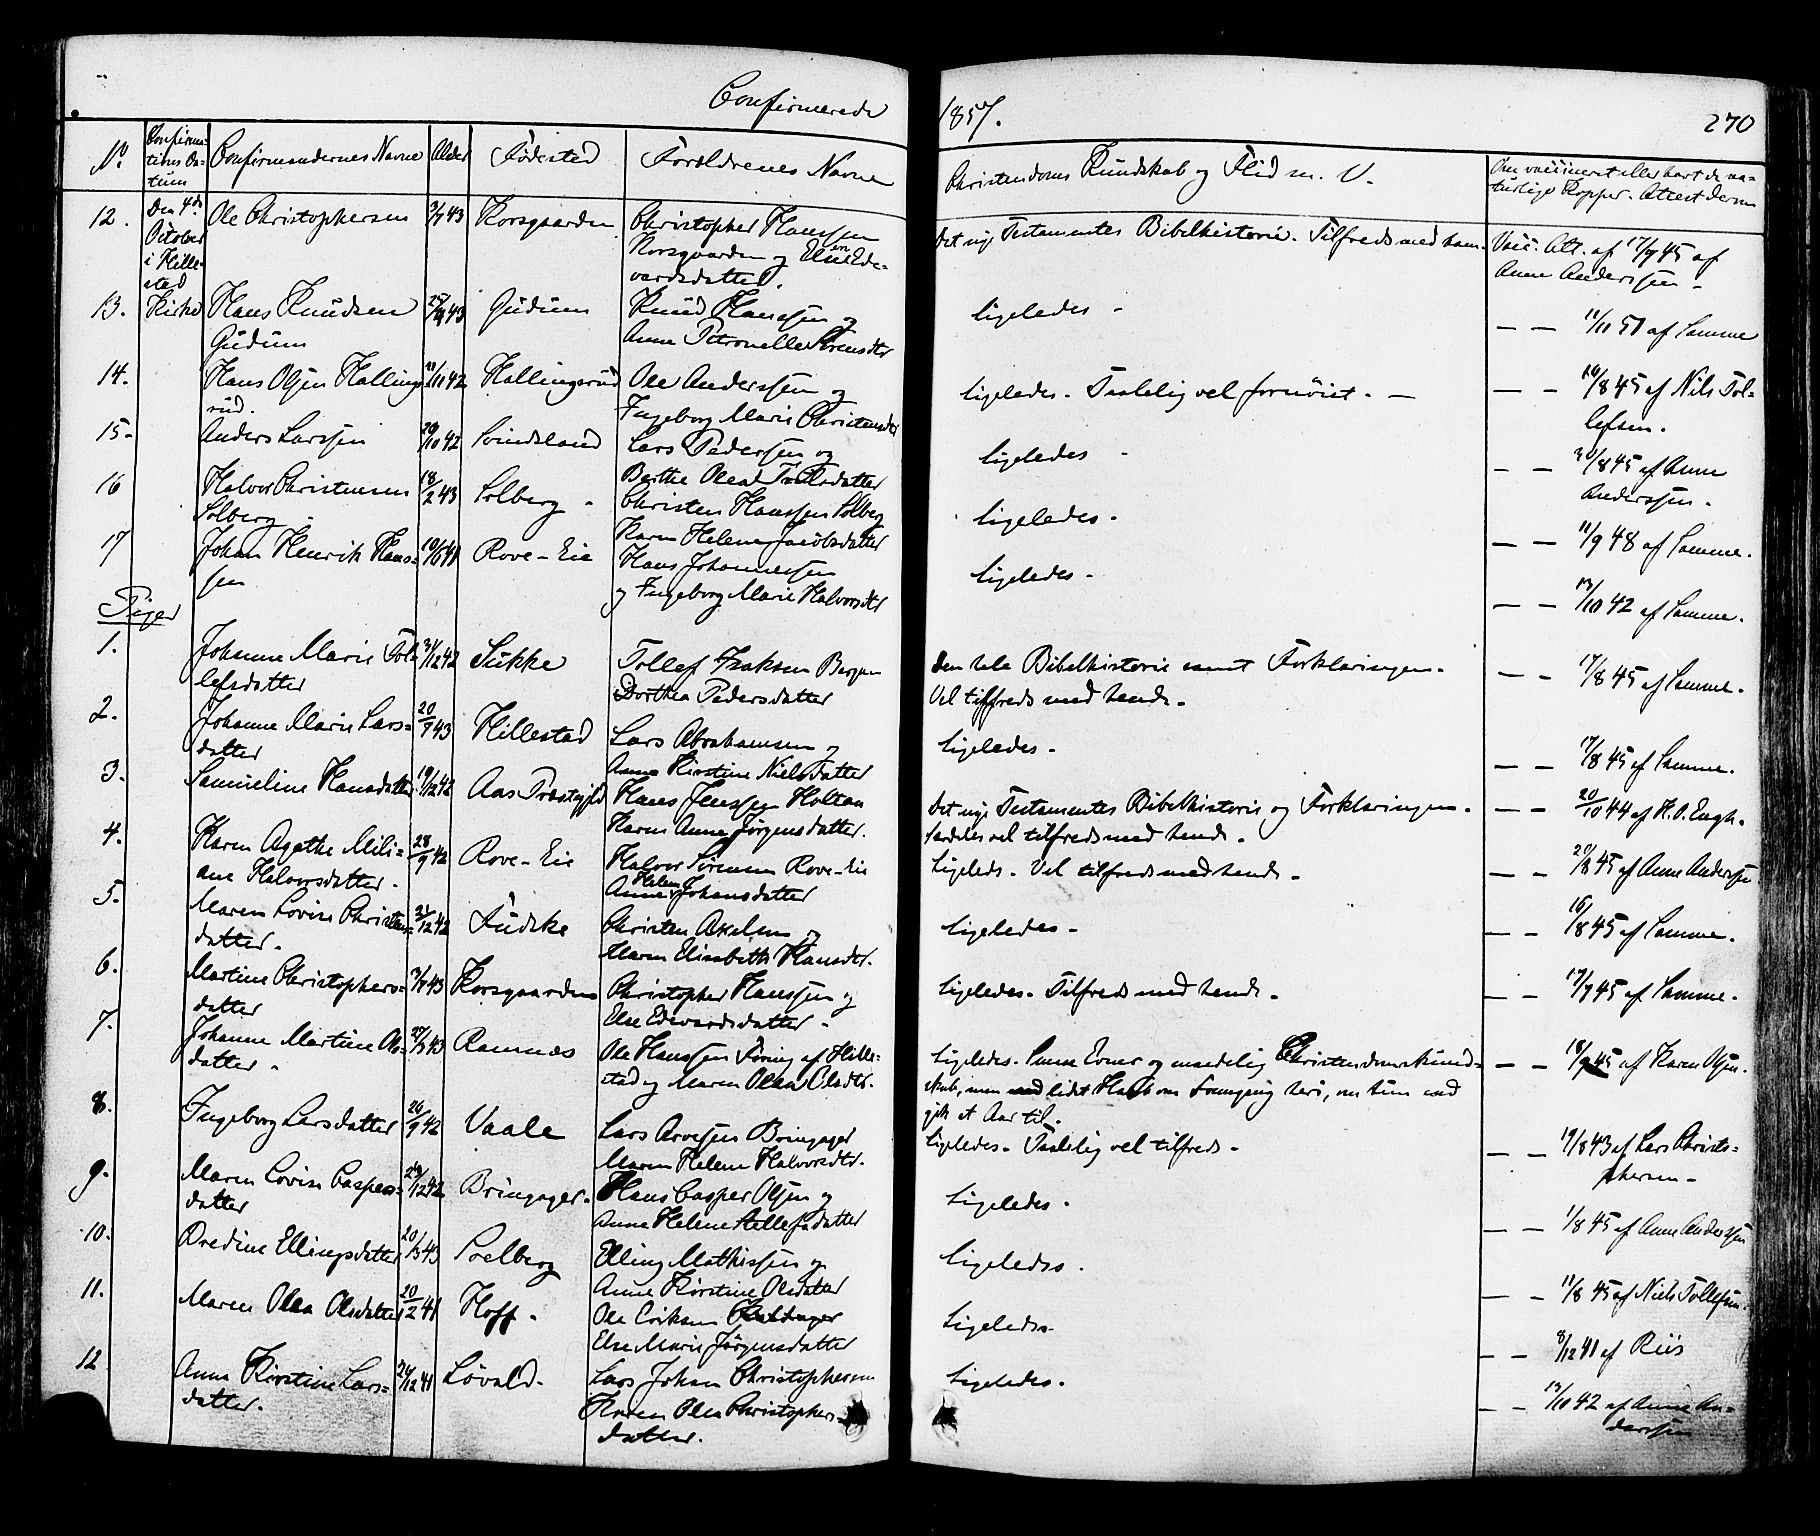 Confirmerede
1857.
270
No
Confirma-
tions Da-
tum
Confirmandernes Navne
Alder
Födested
Forældrenes Navne
Christendoms Kundskab og Flid m. V.
Om vaccineret eller havt de na-
turlige Kopper. Attest derom
12.
Den 4de
October
i Hille-
stad
Kirke
Ole Christophersen
3/7 43
Korsgaarden
Christopher Hanssen
Korsgaarden og Else Ede-
vardsdatter.
Det nye Testamentes Bibelhistorie. Tilfreds med ham.
Vacc. Att. af 17/9 45 af
Anne Anderssen -
13.
Hans Knudsen
Gudum
43
Gudum
Knud Hanssen og
Anne Petronelle Sörensdtr
ligeledes -
— — 11/11 51 af Samme
14.
Hans Olsen Halling-
rud.
42
Hallingrud
Ole Anderssen og
Ingeborg Marie Christensdtr
ligeledes. Taalelig vel fornöiet. —
— — 10/8 45 af Nils Tol-
lefsen.
15.
Anders Larssen
20/10 42
Svindsland
Lars Pedersen og
Berthe Olea datter
ligeledes -
— — 30/8 45 af Anne
Anderssen.
16
Halvor Christensen
Solberg -
18/2 43
Solberg -
Christen Hanssen Solberg
Karen Helene Jacobsdatter
ligeledes.
— — 11/9 48 af Samme.
17
Johan Henrik Hans-
sen
41
Rove-Eie
Hans Johannessen
og Ingeborg Marie Halvorsdtr
ligeledes -
— — 13/10 42 af Samme.
Piger
1.
Johanne Marie Tol-
lefsdatter
31/12 42
Sukke
Tollef Isaksen Bergan
Dorthea Pedersdatter
Den hele Bibelhistorie samt Forklaringen.
Vel tilfreds med hende.
— — 17/8 45 af Samme.
2.
Johanne Marie Lars-
datter
20/7 43
Hillestad
Lars Abrahamsen og
Anne Kirstine Nielsdatter
ligeledes -
— — 17/8 45 af Samme.
3.
Samueline Hansdatter
19/12 42
Aas Præstegjeld
Hans Jenssen Holtan
Karen Anne Jörgensdatter.
Det nye Testamentes Bibelhistorie og Forklaringen.
Særdeles vel tilfreds med hende.
— — 20/10 44 af H. O. Engh.
4.
Karen Agathe Mili-
ane Halvorsdatter -
28/9 42
Rove-Eie
Halvor Sörensen Rove-Eie
Anne Helene Johansdatter
Ligeleds. Vel tilfreds med hende.
— — 29/8 45 af Anne Anderssen
5.
Maren Lovise Christens-
datter.
21/12 42
Fudske
Christen Axelsen og
Maren Elisabeth Hansdtr.
ligeledes -
— — 16/8 45 af Samme.
6.
Martine Christophers-
datter
3/7 43
Korsgaarden
Christopher Hanssen og
Else Edevardsdatter -
ligeledes. Tilfreds med hende.
— — 17/9 45 af Samme.
7.
Johanne Martine Ols-
datter -
43
Ramnæs
Ole Hanssen Föring af Hille-
stad og Maren Olea Olsdtr.
Ligeledes. Smaa Evner og maadelig Christendomskund-
skab, men lidet Haab om Fremgang heri, om hun end
gik et Aar til.
— — 18/9 45 af Karen Olsen.
8.
Ingeborg Larsdatter
26/9 42
Vaale
Lars Arvesen Bringager
Maren Helene Halvorsdtr.
ligeledes. Taalelig vel tilfreds.
— — 19/8 43 af Lars Christo-
phersen -
9.
Maren Lovise Caspers-
datter
42
Bringager.
Hans Casper Olsen og
Anne Helene Tollefsdatter
ligeledes.
— — 1/8 45 af Anne Anderssen
10.
Bredine Ellingsdatter
20/3 43
Solberg
Elling Mathissen og
Anne Kirstine Olsdatter
ligeledes.
— — 11/8 45 af Niels Tollefsen.
11.
Maren Olea Olsdatter
20/12 41
Hoff -
Ole Eriksen
Else Marie Jörgensdatter
ligeledes
— — 8/12 41 af Riis
12
Anne Kirstine Lars-
datter.
26/12 41
Lövald -
Lars Johan Christophersen
Karen Olea Christophers-
datter.
ligeledes.
— — 13/10 42 af Anne An-
derssen